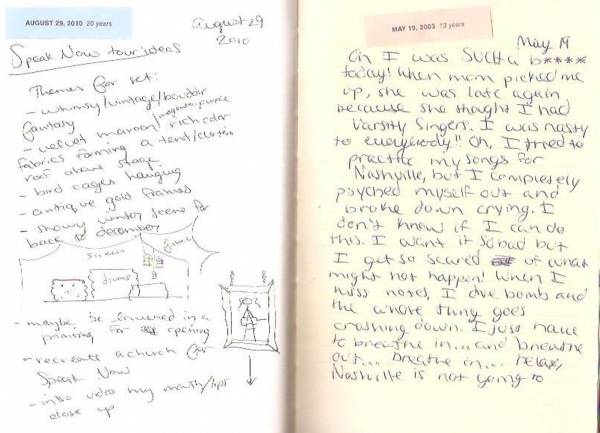 AUGUST 29, 2010 20 years
August 29
2010
Speak Now tour ideas
Themes for set:
- whimsy/vintage/boudoir
fantasy
/magenta purple
- velvet maroon/rich color
fabrics forming a tent/curtain
roof above stage.
- bird cages hanging
- antique gold frames
- snowy winter scene for
back to december
screen
drums
- maybe be lowered in a
painting for opening
- recreate a church for
Speak Now
- intro video my mouth/lips
close up
MAY 19, 2003 13 years
May 19
Oh I was SUCH a b****
today! When mom picked me
up, she was late again
because she thought I had
Varsity Singers. I was nasty
to everybody!! Oh, I tried to
practice my songs for
Nashville, but I completely
psyched myself out and
broke down crying. I
don't know if I can do
this. I want it so bad but
I get so scared of what
might not happen! When I
miss notes, I dive bomb and
the whole thing goes
crashing down. I just have
to breathe in... and breathe
out... breathe in... Relax,
Nashville is not going to